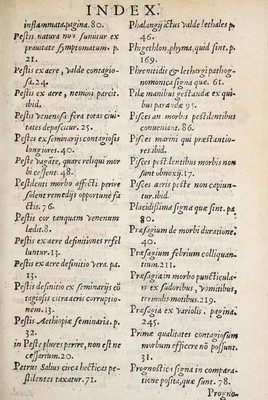 INDEX.
inflammata, pagina. 80.
Pestis natura non sumitur ex
prauitate symptomatum. p.
21.
Pestis ex aere, valde contagio-
sa. 24.
Pestis ex aere, nemini parcit.
ibid.
Pestis venenosa fera totas ciui-
tates depascitur. 25.
Pestis ex seminarijs contagiosis
longiores. 40.
Peste vagāte, quare reliqui mor
bi cessent. 48.
Pestilenti morbo affecti perire
solent remedijs opportunè fa
ctis. 76.
Pestis cor tanquam venenum
lædit. 8.
Pestis ex aere definitiones refel
luntur. 13.
Pestis ex aere definitio vera. pa.
13.
Pestis definitio ex seminarijs cō
tagiosis citra aeris corruptio-
nem. 13.
Pestis Aethiopiæ seminaria. p.
32.
in Peste plures perire, non est ne
cessarium. 20.
Petrus Salus circa hecticas pe-
stilentes taxatur. 71.
Phalangij ictus valde lethales p.
46.
Phigethlon, phyma, quid sint. p.
169.
Phrenitidis & lethargi pathog-
nomonica signa quæ. 61.
Pilæ manibus gestandæ ex qui-
bus parādæ. 95.
Pisces an morbis pestilentibus
conueniant. 86.
Pisces marini quæ præstantio-
res. ibid.
Pisces pestilentibus morbis non
sunt obnoxij. 17.
Pisces aeris peste non capiun-
tur. ibid.
Placidissima signa quæ sint. pa.
80.
Præsagium de morbi duratione.
40.
Præsagium febrium colliquan-
tium. 211.
Præsagia in morbo puncticula-
re ex sudoribus, vomitibus,
tremulis motibus. 219.
Præsagia ex variolis. pagina.
245.
Primæ qualitates contagiosum
morbum efficere nō possunt.
31.
Prognostica signa in compara-
tione posita, quæ sunt. 78.
Progno-